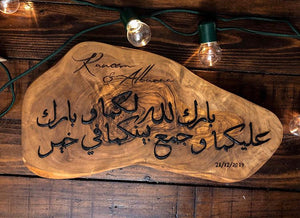 Raneem
&
بارك الله لكما و بارك
عليكما و جمع بينكما في خير
28/12/2019